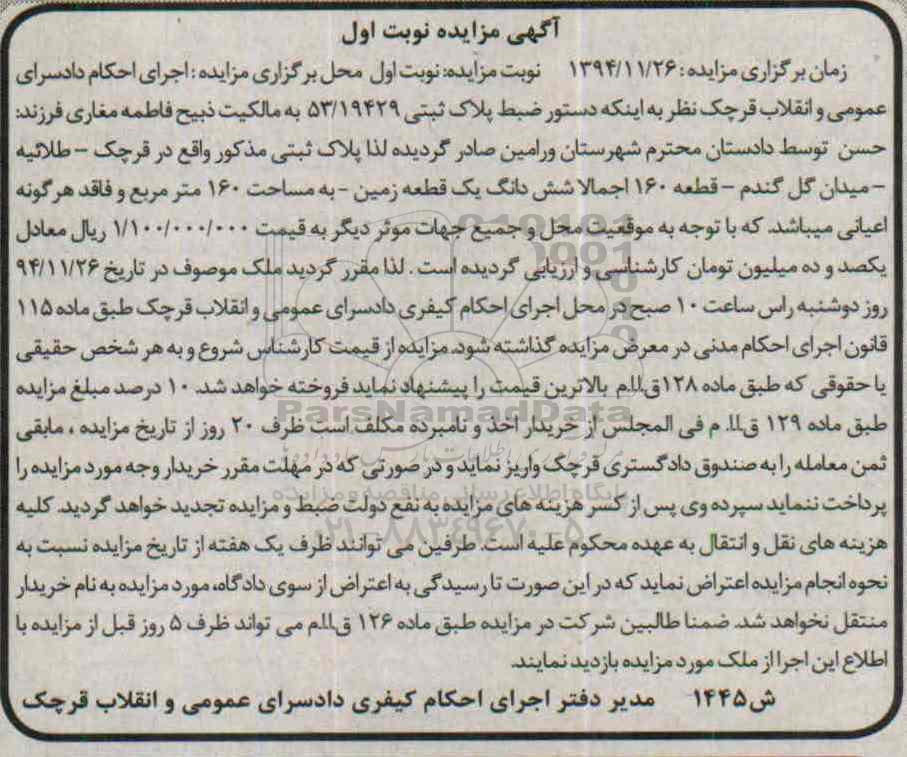 آگهی مزایده نوبت اول
زمان برگزاری مزایده: ۱۳۹۴/۱۱/۲۶ نوبت مزایده: نوبت اول محل برگزاری مزایده: اجرای احکام دادسرای
عمومی و انقلاب قرچک نظر به اینکه دستور ضبط پلاک ثبتی ۵۳/۱۹۴۲۹ به مالکیت ذبیح فاطمه مغاری فرزند:
حسن توسط دادستان محترم شهرستان ورامین صادر گردیده لذا پلاک ثبتی مذکور واقع در قرچک – طلائیه
– میدان گل گندم – قطعه ۱۶۰ اجمالا شش دانگ یک قطعه زمین – به مساحت ۱۶۰ متر مربع و فاقد هرگونه
اعیانی میباشد. که با توجه به موقعیت محل و جمیع جهات موثر دیگر به قیمت ۱/۱۰۰/۰۰۰/۰۰۰ ریال معادل
یکصد و ده میلیون تومان کارشناسی و ارزیابی گردیده است. لذا مقرر گردید ملک موصوف در تاریخ ۹۴/۱۱/۲۶
روز دوشنبه راس ساعت ۱۰ صبح در محل اجرای احکام کیفری دادسرای عمومی و انقلاب قرچک طبق ماده ۱۱۵
قانون اجرای احکام مدنی در معرض مزایده گذاشته شود. مزایده از قیمت کارشناس شروع و به هر شخص حقیقی
یا حقوقی که طبق ماده ۱۲۸ ق.ا.ا.م بالاترین قیمت را پیشنهاد نماید فروخته خواهد شد. ۱۰ درصد مبلغ مزایده
طبق ماده ۱۲۹ ق.ا.ا. م فی المجلس از خریدار اخذ و نامبرده مکلف است ظرف ۲۰ روز از تاریخ مزایده ، مابقی
ثمن معامله را به صندوق دادگستری قرچک واریز نماید و در صورتی که در مهلت مقرر خریدار وجه مورد مزایده را
پرداخت ننماید سپرده وی پس از کسر هزینه های مزایده به نفع دولت ضبط و مزایده تجدید خواهد گردید. کلیه
هزینه های نقل و انتقال به عهده محکوم علیه است. طرفین می توانند ظرف یک هفته از تاریخ مزایده نسبت به
نحوه انجام مزایده اعتراض نماید که در این صورت تا رسیدگی به اعتراض از سوی دادگاه، مورد مزایده به نام خریدار
منتقل نخواهد شد. ضمنا طالبین شرکت در مزایده طبق ماده ۱۲۶ ق.ا.ا.م می تواند ظرف ۵ روز قبل از مزایده با
اطلاع این اجرا از ملک مورد مزایده بازدید نمایند.
ش۱۴۴۵ مدیر دفتر اجرای احکام کیفری دادسرای عمومی و انقلاب قرچک
ParsNamadData
پایگاه اطلاع رسانی مناقصه و مزایده
۰۲۱-۸۸۳۴۹۶۷۰-۵